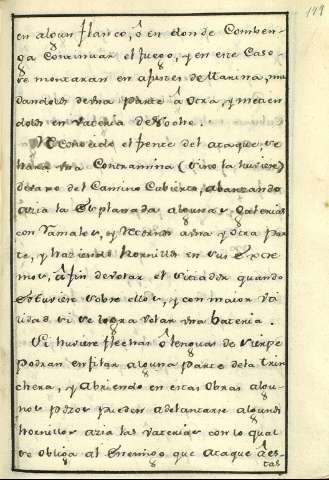 179
en algun flanco, ô en donde Comben-
ga Continuar el fuego, y en este Caso
se montaran en afustes de Marina, mu
dandolos de vna parte â otra, y metien
dolos en vateria de Noche.
Reconocido el frente del ataque, se
hara vna Contramina (sino la huviere)
devaxo del Camino Cubierto, abanzando
azia la Esplanada algunas Galerias
con Ramales, y Retornos a vna y otra par
te, y haziendo hornillos en sus Extre
mos, â fin de volar el sitiador quando
Estuviere sobre ellos, y con maior vti
lidad si se logra volar vna bateria.
Si huviere flechas ô lenguas de sierpe
podran enfilar alguna parte dela trin
chera, y Abriendo en estas obras algu-
nos pozos pueden adelantarse algunos
hornillos azia las vaterias con lo qual
se obliga al Enemigo que ataque âes-
tas